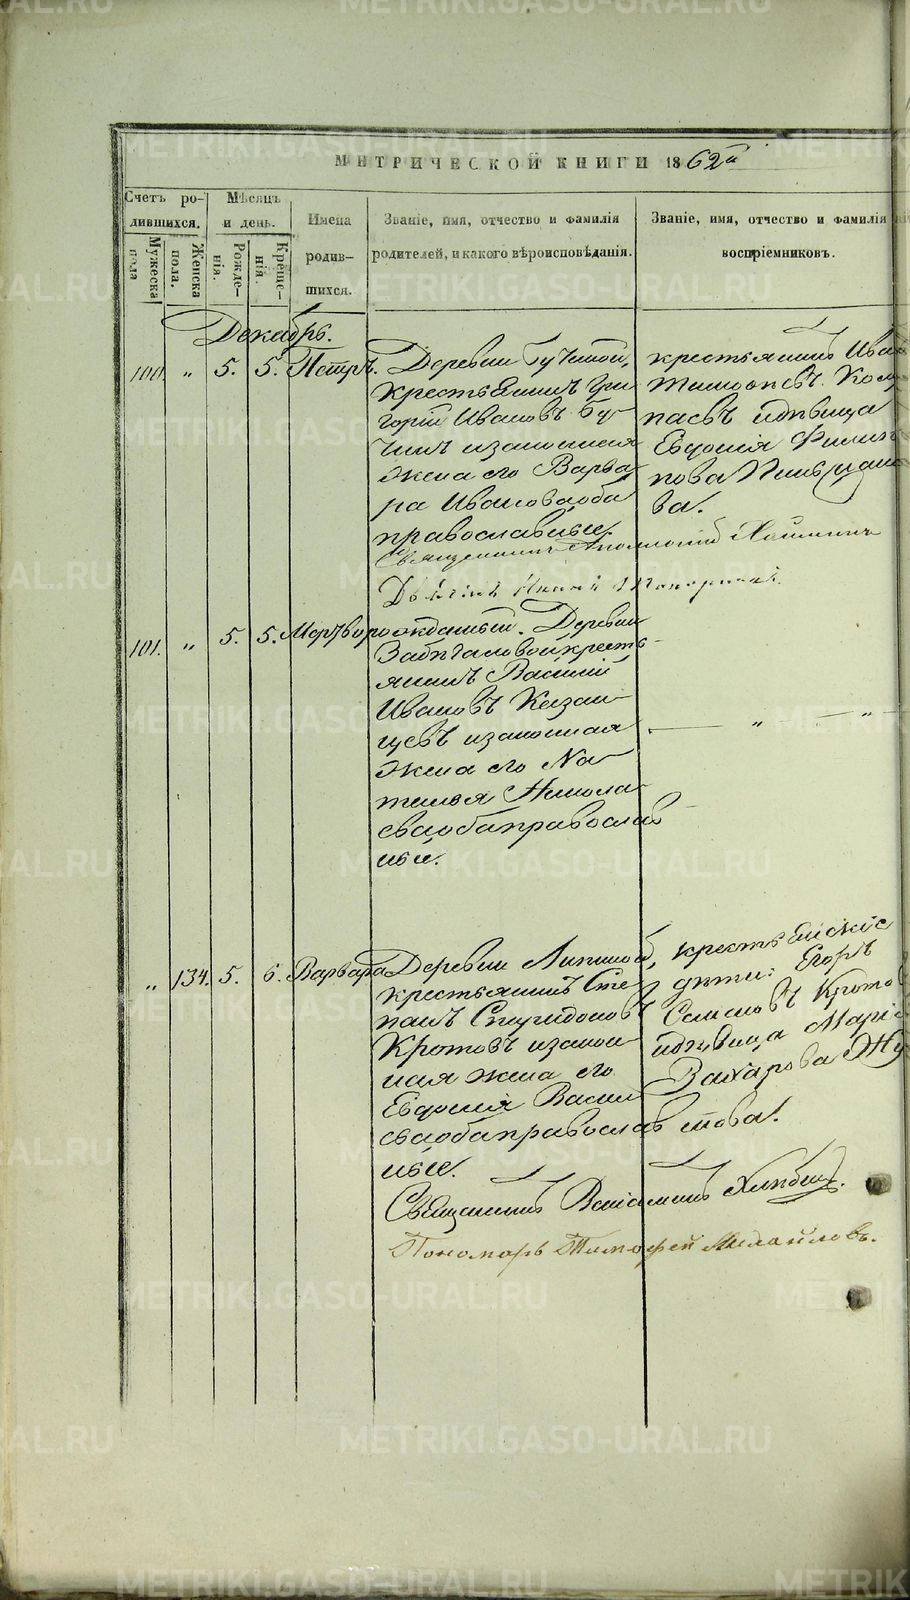 МЕТРИЧЕСКОЙ КНИГИ 1862й
Счетъ ро-
дившихся.
Мужеска
пола
Женска
пола.
Мѣсяцъ
и день.
Рожде-
нія.
Креще-
нія.
Имена
родив-
шихся.
Званіе, имя, отчество и фамилія
родителей, и какого вѣроисповѣданія.
Званіе, имя, отчество и фамилія
воспріемниковъ.
Декабрь.
100. " 5. 5. Петръ.
Деревни
крестьянинъ Гри
горій Ивановъ Бу
чинъ изаконная
жена его Варва
ра Ивановаоба
православные.
крестьянинъ Ива
идѣвица
Евдокія Филип
пова
ва.
Священникъ
101. " 5. 5. Мертворожденный.
Деревни
кресть
янинъ Василій
Ивановъ Казан
цевъ изаконная
жена его На
талья Никола
еваобаправослав
ные.
" "
" 134. 5. 6. Варвара
Деревни Липиной,
крестьянинъ Сте
панъ Спиридоновъ
Кротовъ изакон
ная жена его
Евдокія Васил
еваобаправослав
ные.
крестьянскіе
дѣти: Егоръ
Семеновъ Кротов
идѣвица Марі
Захарова Жу
това.
Священникъ Веніаминъ Хлѣбинъ.
Пономарь Тимофей Михайловъ.
METRIKI.GASO-URAL.RU